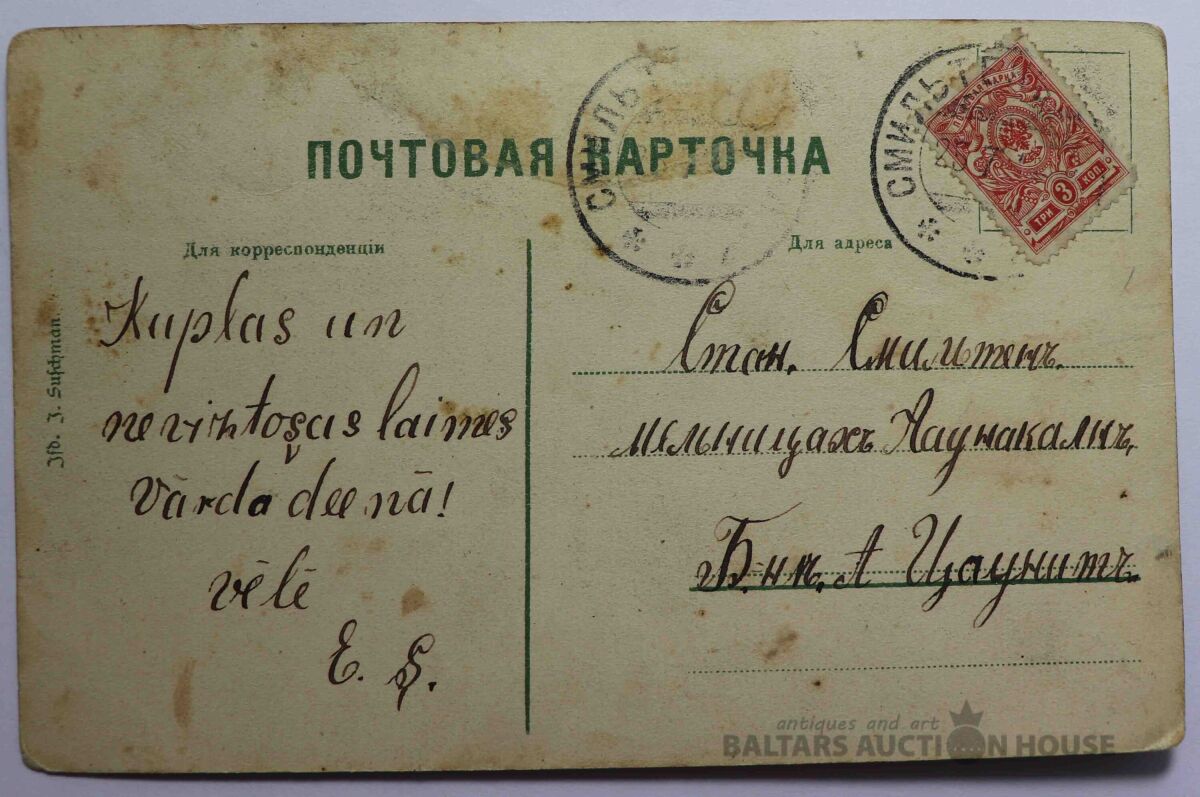 ПОЧТОВАЯ КАРТОЧКА
СМИЛЬТ
СМИЛЬТЕ
ПОЧТОВАЯ МАРКА
ТРИ 3 КОП.
Для корреспонденціи
Для адреса
Изд. J. Suschman.
Kuplas un
nevihtoşas laimes
Vārda deenā!
vēlē
E. Ş.
Стан. Смильтенъ.
мельницахъ Каунакалнъ,
Б-нкъ. А Цаунитъ.
antiques and art
BALTARS AUCTION HOUSE